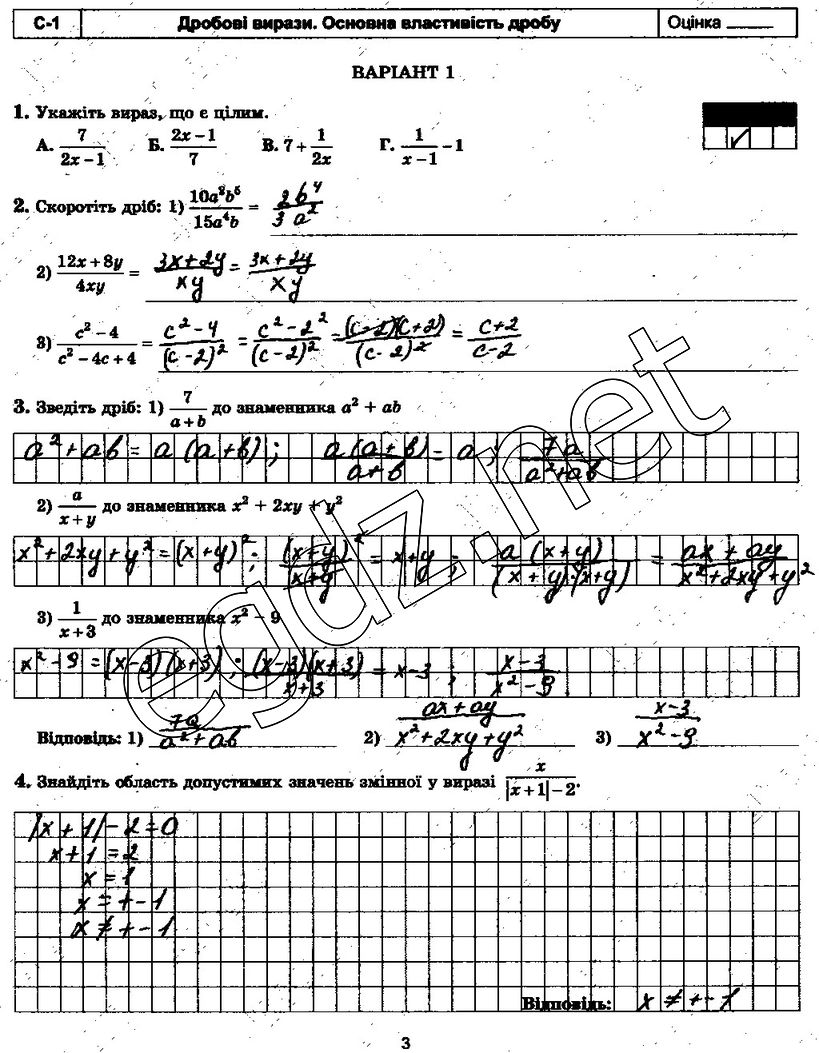 С-1 Дробові вирази. Основна властивість дробу Оцінка _____
ВАРІАНТ 1
1. Укажіть вираз, що є цілим.
А. 7/(2x−1) Б. (2x−1)/7 В. 7 + 1/(2x) Г. 1/(x−1) − 1
✓
2. Скоротіть дріб: 1) 10a²b⁵/15a⁴b = 2b⁴/3a²
2) (12x + 8y)/4xy = (3x + 2y)/xy = (3x + 2y)/xy
3) (c² − 4)/(c² − 4c + 4) = (c² − 4)/(c − 2)² = (c² − 2²)/(c − 2)² = (c − 2)(c + 2)/(c − 2)² = (c + 2)/(c − 2)
3. Зведіть дріб: 1) 7/(a + b) до знаменника a² + ab
a² + ab = a(a + b); a(a + b)/(a + b) = a; 7a/(a² + ab)
2) a/(x + y) до знаменника x² + 2xy + y²
x² + 2xy + y² = (x + y)²; (x + y)²/(x + y) = x + y; a(x + y)/((x + y)·(x + y)) = (ax + ay)/(x² + 2xy + y²)
3) 1/(x + 3) до знаменника x² − 9
x² − 9 = (x − 3)(x + 3); (x − 3)(x + 3)/(x + 3) = x − 3; (x − 3)/(x² − 9)
Відповідь: 1) 7a/(a² + ab) 2) (ax + ay)/(x² + 2xy + y²) 3) (x − 3)/(x² − 9)
4. Знайдіть область допустимих значень змінної у виразі x/(|x + 1| − 2).
|x + 1| − 2 = 0
x + 1 = 2
x = 1
x = + − 1
x ≠ + − 1
Відповідь: x ≠ + − 1
3
egdz.net